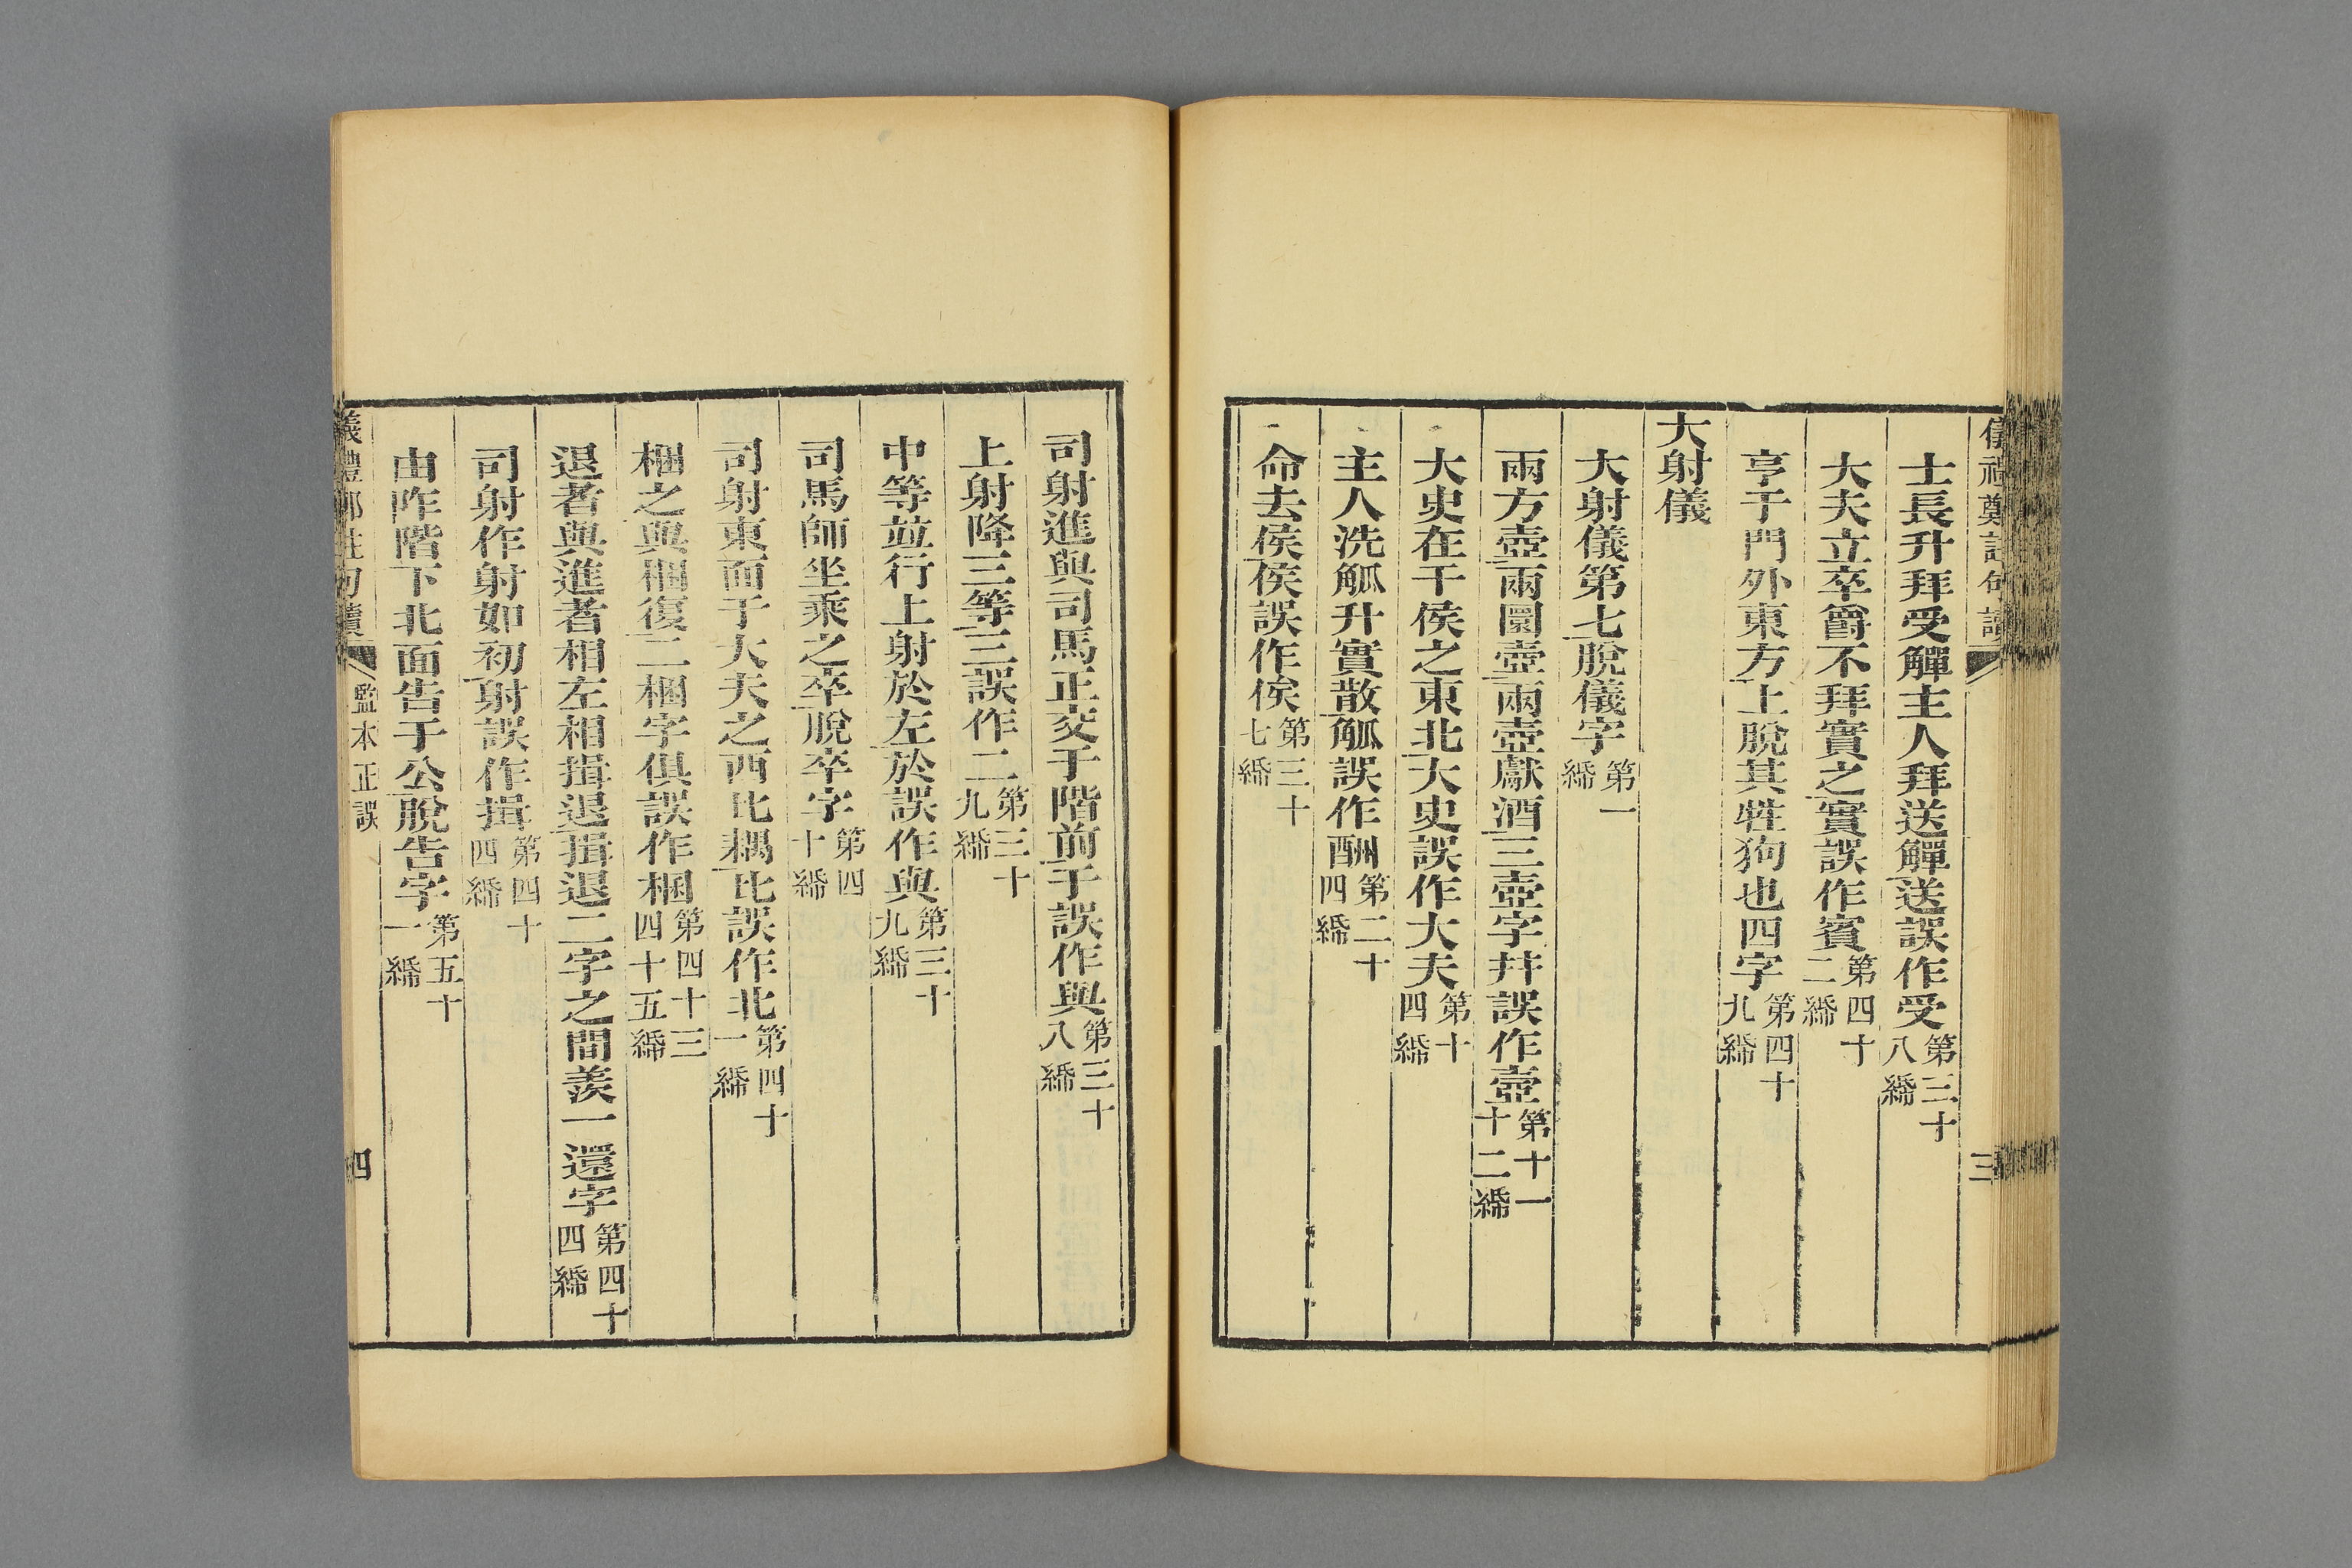 儀禮鄭註句讀 三
士長升拜受觶主人拜送觶送誤作受第三十八紙
大夫立卒爵不拜實之實誤作賓第四十二紙
亨于門外東方上脫其牲狗也四字第四十九紙
大射儀
大射儀第七脫儀字第一紙
兩方壺兩圜壺兩壺獻酒三壺字幷誤作壼第十一十二紙
大史在干侯之東北大史誤作大夫第十四紙
主人洗觚升實散觚誤作酬第二十四紙
命去侯侯誤作俟第三十七紙
司射進與司馬正交于階前于誤作與第三十八紙
上射降三等三誤作二第三十九紙
中等並行上射於左於誤作與第三十九紙
司馬師坐乘之卒脫卒字第四十紙
司射東面于大夫之西比耦比誤作北第四十一紙
梱之興梱復二梱字俱誤作捆第四十三四十五紙
退者與進者相左相揖退揖退二字之間羨一還字第四十四紙
司射作射如初射誤作揖第四十四紙
由阼階下北面告于公脫告字第五十一紙
儀禮鄭註句讀 監本正誤 四